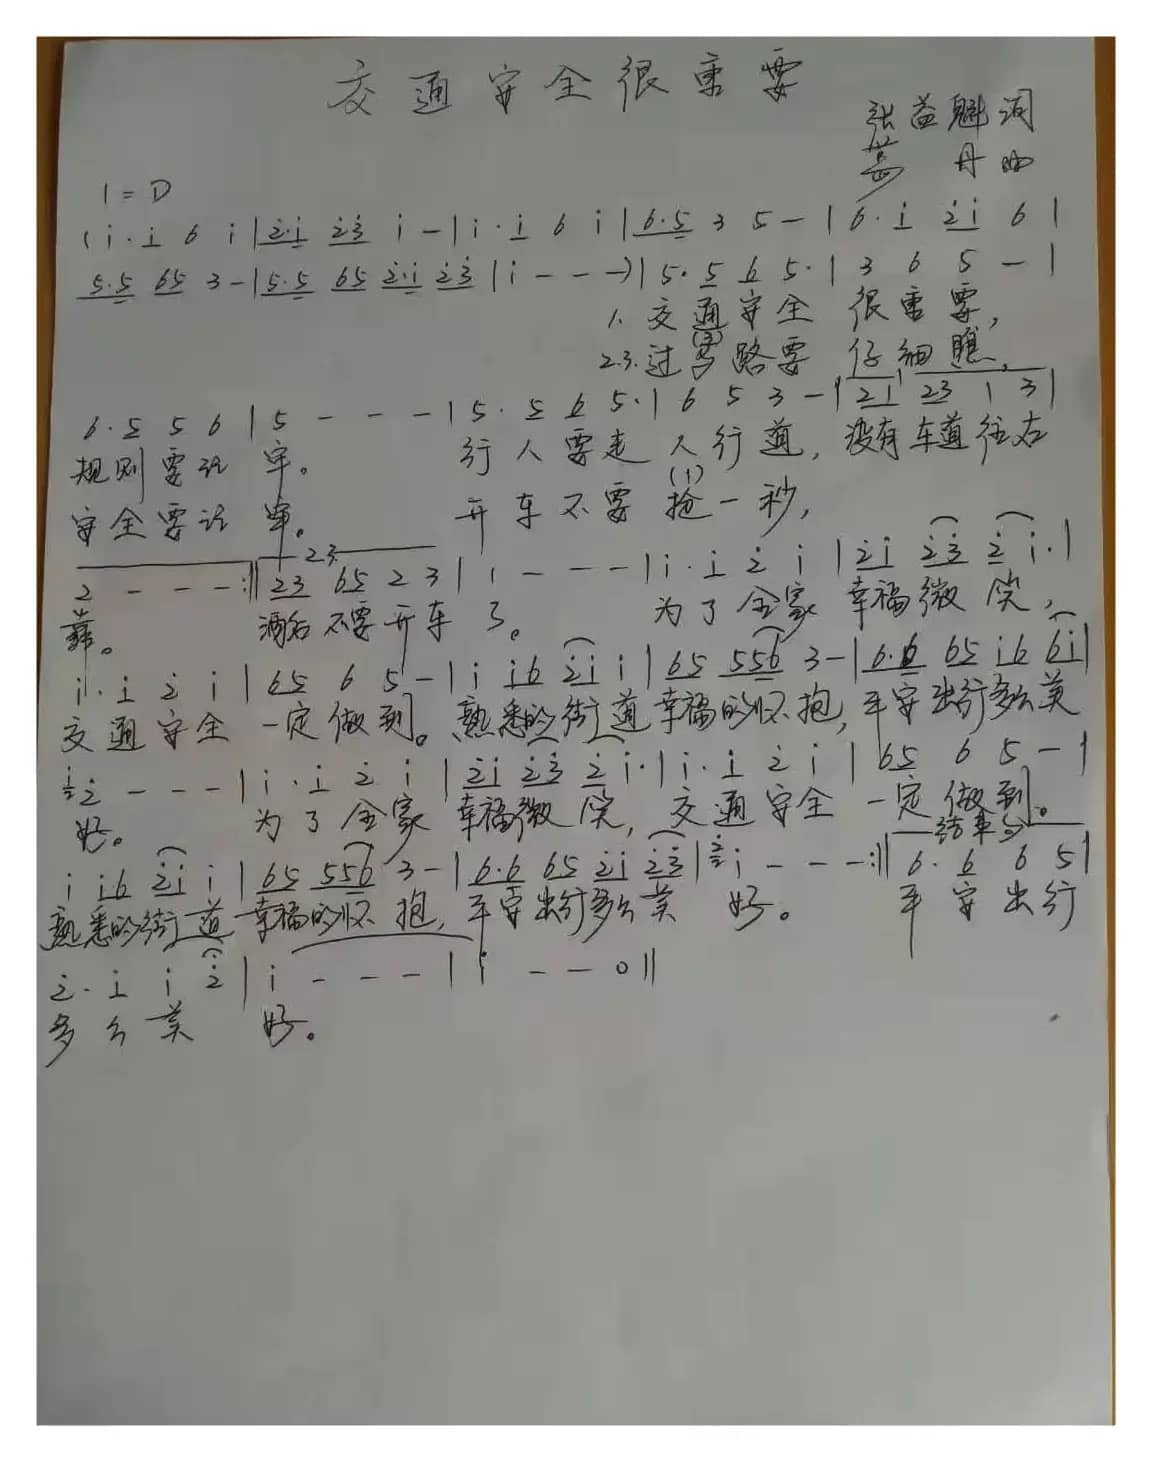 交通安全很重要
张益魁 词
丹 曲
1=D
(i·i 6 i|2·i 23 i -|i·i 6 i|6·5 3 5 -|6·i 2i 6|
5·5 65 3 -|5·5 65 2·i 23|i - - -)|5·5 6 5·|3 6 5 -|
1. 交通安全 很重要,
(3)
2.3.过马路要 仔细瞧,
6·5 5 6|5 - - -|5·5 6 5·|6 5 3 -|21 23 1 3|
规则要记牢。 行人要走人行道, 没有车道往右
(1)
安全要记牢。 开车不要抢一秒,
2.3.
2 - - -:‖23 65 2 3|1 - - -|i·i 2 i|2i 23 2 i·|
靠。 酒后不要开车了。 为了全家 幸福微笑,
i·i 2 i|65 6 5 -|i i6 2i i|65 556 3 -|6·6 65 i6 6i|
交通安全 一定做到。熟悉的街道 幸福的怀抱, 平安出行多么美
2 - - -|i·i 2 i|2i 23 2 i·|i·i 2 i|65 6 5 -|
好。 为了全家 幸福微笑, 交通安全 一定做到。
结束句
i i6 2i i|65 556 3 -|6·6 65 2i 23|i - - -:‖6·6 6 5|
熟悉的街道 幸福的怀抱, 平安出行多么美 好。 平安出行
2·i i 2|i - - -|i - - 0‖
多么美 好。